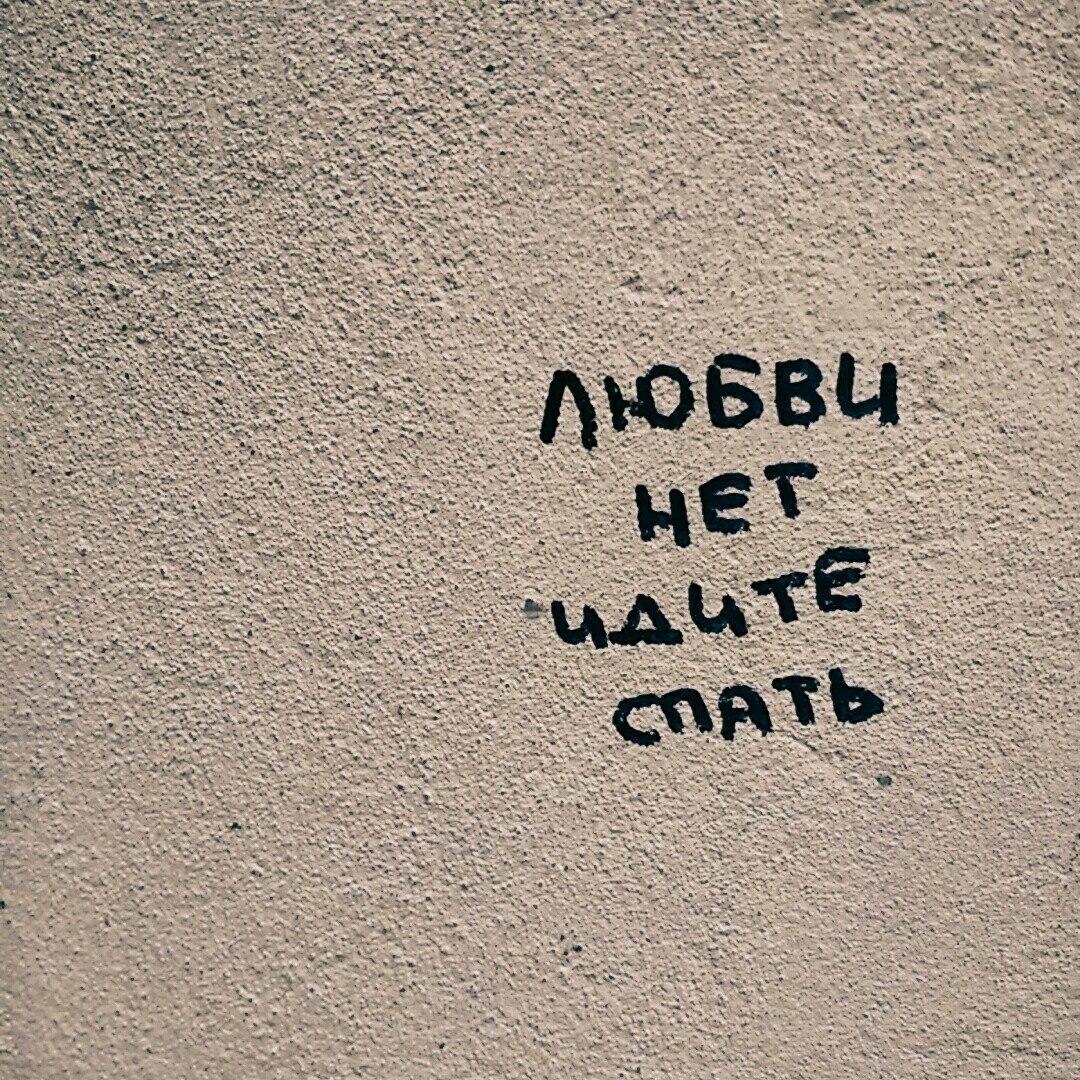 ЛЮБВИ
НЕТ
ИДИТЕ
СПАТЬ